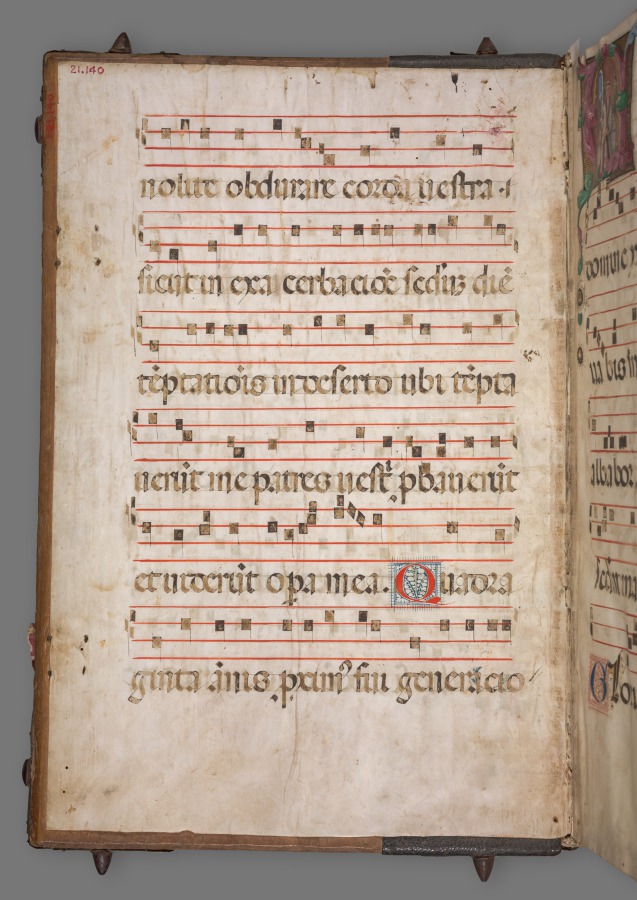 21.140
nolite obdurare corda uestra ·s
sicut in exa cerbacioē scd'm diē
tēptatiois in deserto ubi tēpta
uerūt me patres uestī pbauerūt
et uiderūt opa mea. Quadra
ginta ānis pxim' fui generacio
domine
ua bis in
alba bor